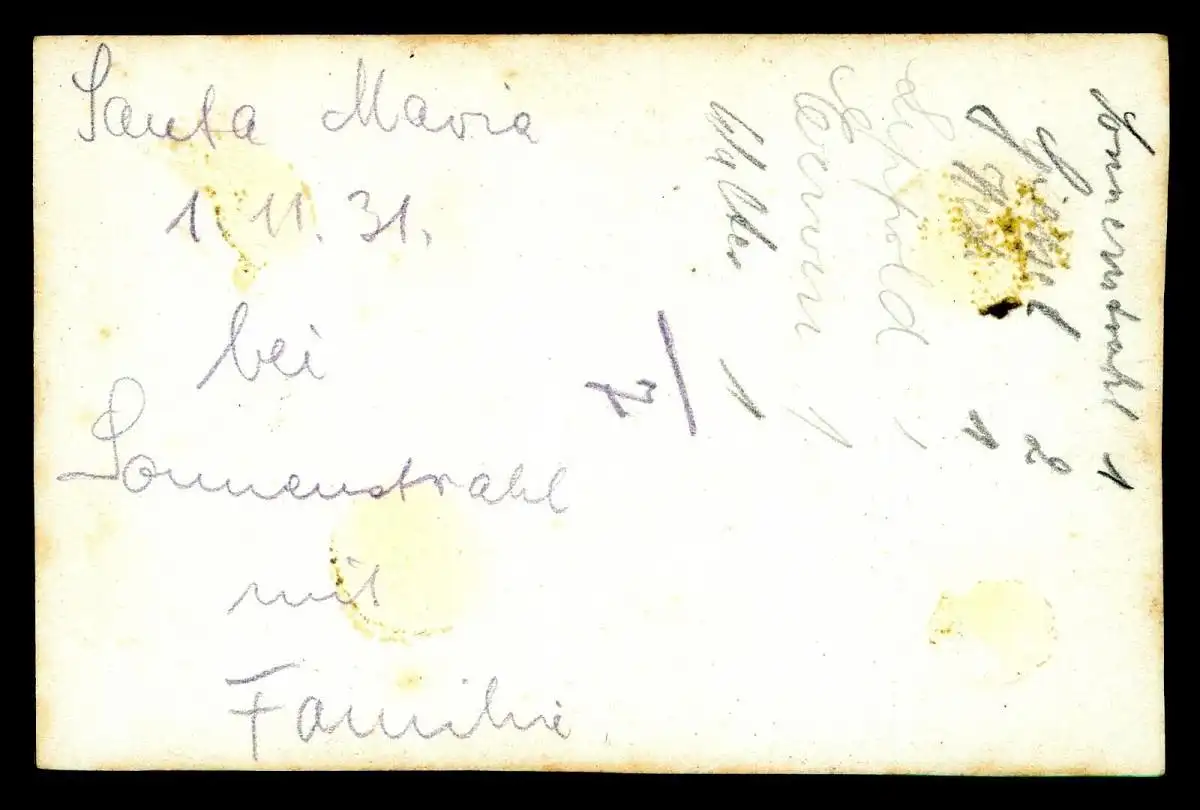 Santa Maria
1. 11. 31.
bei
Sonnenstrahl
mit
Familie
Sonnenstrahl 1
2
1
Lippold 1
Herwin 1
Walter 1
7/